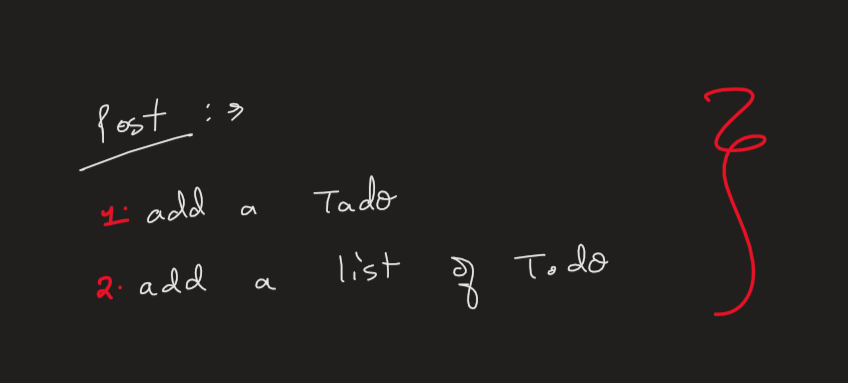 Post :⇒
1. add a Tado
2. add a list of Todo